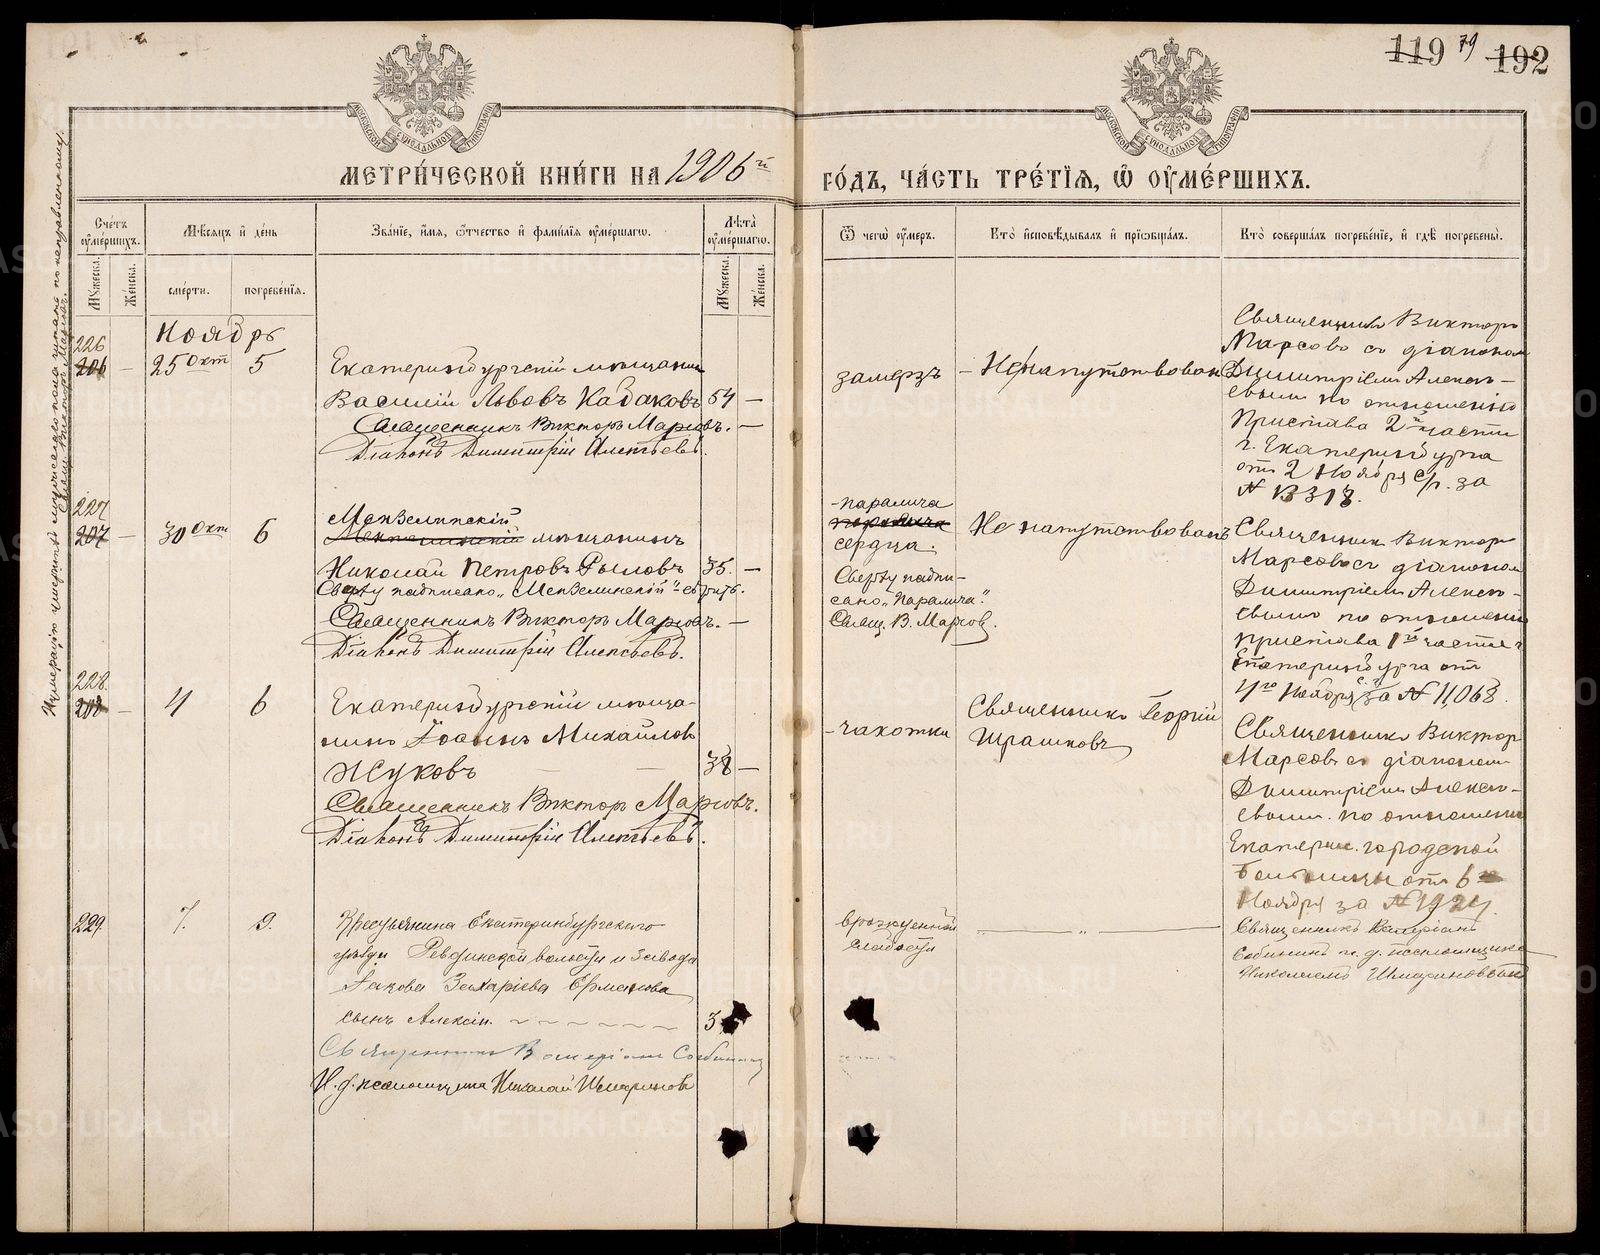 119 79 192
МОСКОВСКОЙ СѴНОДАЛЬНОЙ ТИПОГРАФІИ
МОСКОВСКОЙ СѴНОДАЛЬНОЙ ТИПОГРАФІИ
МЕТРИ́ЧЕСКОЙ КНИ́ГИ НА 1906й
ГО́ДЪ, ЧА́СТЬ ТРЕ́ТЇѦ, Ѡ ОУ҆МЕ́РШИХЪ.
Нумерацію умершихъ мужескаго пола читать по исправленному.
Свящ. Викторъ Марсовъ.
Сче́тъ оу҆ме́ршихъ.
Мꙋ́жеска.
Же́нска.
Мѣ́сѧцъ и҆ де́нь
сме́рти.
погребе́нїѧ.
Зва́нїе, и҆́мѧ, ѻ҆́тчество и҆ фами́лїѧ оу҆ме́ршагѡ.
Лѣ̑та оу҆ме́ршагѡ.
Мꙋ́жеска.
Же́нска.
Ѿ чегѡ̀ оу҆́меръ.
Кто̀ и҆сповѣ́дывалъ и҆ прїѡбща́лъ.
Кто̀ соверша́лъ погребе́нїе, и҆ гдѣ̀ погребены̀.
Ноябрь
226
206 — 25 Окт 5
Екатеринбургскій мѣщанинъ
Василій Львовъ Кадаковъ 54 —
Священникъ Викторъ Марсовъ. —
Діаконъ Димитрій Алексѣевъ.
замерзъ
— Не напутствованъ
Священникъ Викторъ
Марсовъ съ діакономъ
Димитріемъ Алексѣ-
евымъ по отношенію
Пристава 2й части
г. Екатеринбурга
отъ 2 Ноября с/г. за
№ 13318.
227
207 — 30 Окт 6
Мензелинскій
мѣщанинъ
Николай Петровъ Рыловъ 35. —
Сверху надписано „Мензелинскій“ — вѣрить.
Священникъ Викторъ Марсовъ. —
Діаконъ Димитрій Алексѣевъ.
паралича
паралича
сердца.
Сверху надпи-
сано „паралича“.
Свящ. В. Марсов.
Не напутствованъ
Священникъ Викторъ
Марсовъ съ діакономъ
Димитріемъ Алексѣ-
евымъ по отношенію
пристава 1й части г.
Екатеринбурга отъ
4го Ноября за № 11,063.
228.
208 — 4 6
Екатеринбургскій мѣща-
нинъ Іоаннъ Михайловъ
Жуковъ — — 38 —
Священникъ Викторъ Марсовъ.
Діаконъ Димитрій Алексѣевъ.
чахотки
Священникъ Георгій
Священникъ Викторъ
Марсовъ съ діакономъ
Димитріемъ Алексѣ-
евымъ. по отношенію
Екатерин. городской
Больницы отъ 6го
Ноября за № 1924.
229. 7. 9.
Крестьянина Екатеринбургскаго
уѣзда Ревдинской волости и завода
Іакова Захаріева Ермакова
сынъ Алексій.
Священникъ Валеріанъ
И. д. псаломщика Николай
врожденной
слабости
— „ —
Священникъ Валеріанъ
и. д. псаломщика
Николаемъ